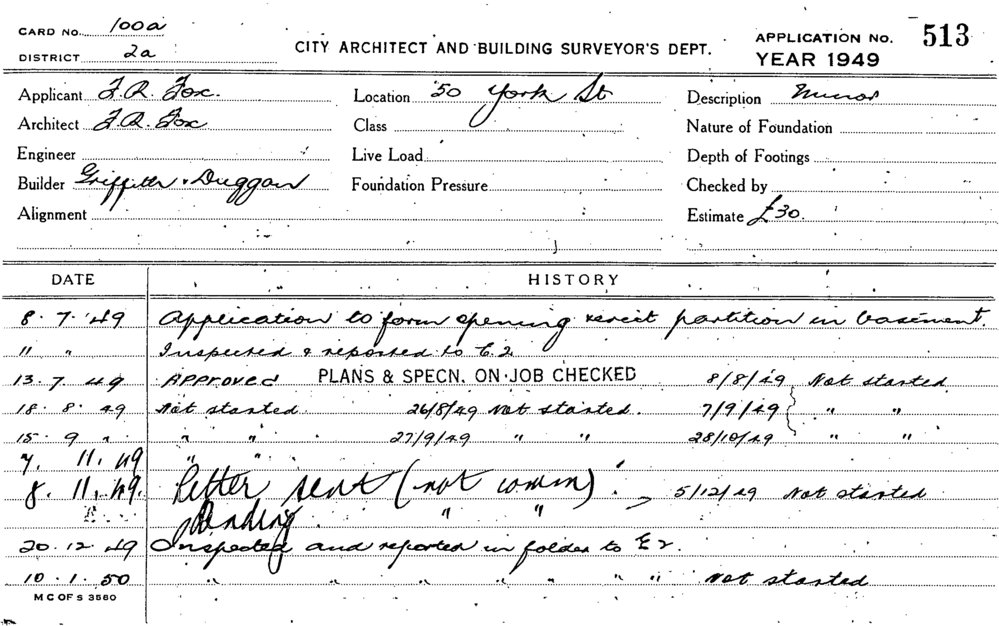 CARD NO. 100a
DISTRICT 2a
CITY ARCHITECT AND BUILDING SURVEYOR'S DEPT.
APPLICATION NO. 513
YEAR 1949
Applicant F.R. Fox. Location 50 York St Description Minor
Architect F.R. Fox Class Nature of Foundation
Engineer Live Load Depth of Footings
Builder Griffith & Duggan Foundation Pressure Checked by
Alignment Estimate £30.
DATE HISTORY
8.7.49 Application to form opening & erect partition in basement.
" " Inspected & reported to E.2
13.7.49 Approved PLANS & SPECN. ON JOB CHECKED 8/8/49 Not started
18.8.49 Not started. 26/8/49 Not started. 7/9/49 " "
15.9 " " " 27/9/49 " " 28/10/49 " "
7. 11. 49 " "
8. 11. 49. Letter sent (not comm). 5/12/49 Not started
Pending. " "
20.12.49 Inspected and reported in folder to E2.
10.1.50 " " " " " " " Not started
M C OF S 3560